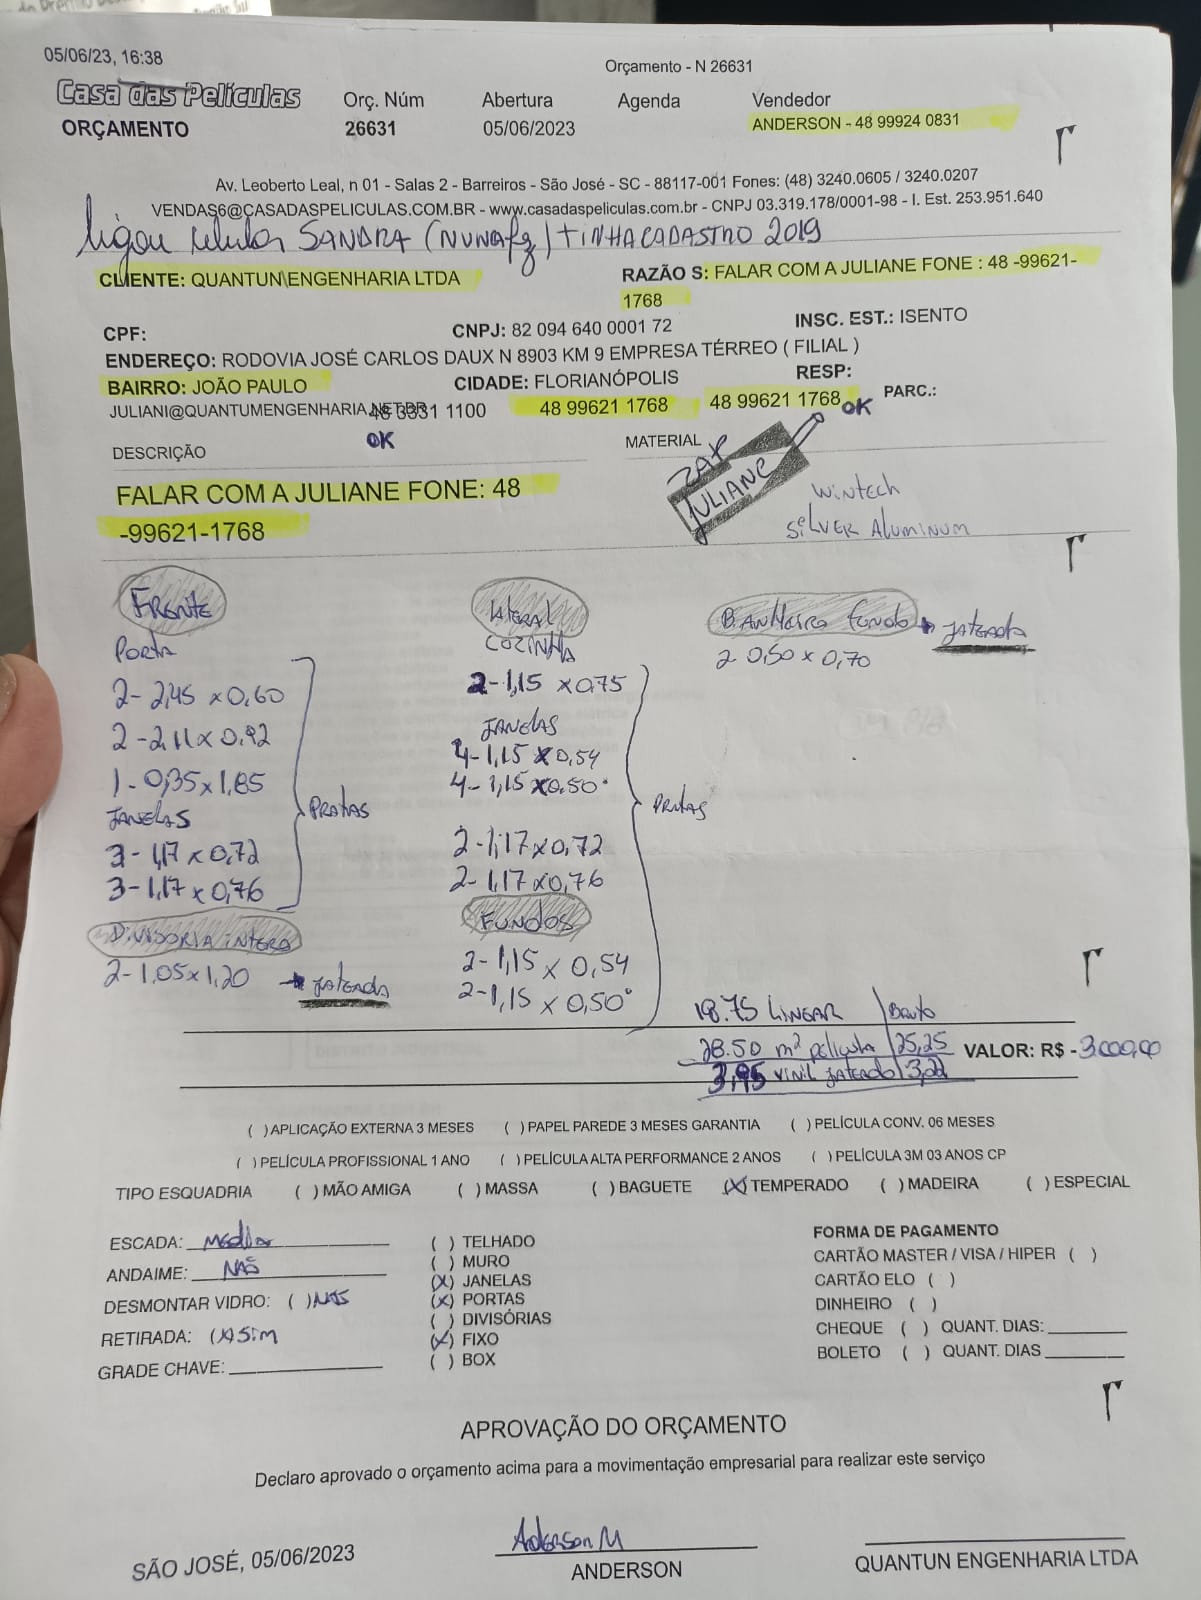 05/06/23, 16:38
Orçamento - N 26631
Casa das Películas
Orç. Núm Abertura Agenda Vendedor
ORÇAMENTO 26631 05/06/2023 ANDERSON - 48 99924 0831
Av. Leoberto Leal, n 01 - Salas 2 - Barreiros - São José - SC - 88117-001 Fones: (48) 3240.0605 / 3240.0207
VENDAS6@CASADASPELICULAS.COM.BR - www.casadaspeliculas.com.br - CNPJ 03.319.178/0001-98 - I. Est. 253.951.640
ligou SANDRA TINHA CADASTRO 2019
CLIENTE: QUANTUN ENGENHARIA LTDA RAZÃO S: FALAR COM A JULIANE FONE : 48 -99621-
1768
CPF: CNPJ: 82 094 640 0001 72 INSC. EST.: ISENTO
ENDEREÇO: RODOVIA JOSÉ CARLOS DAUX N 8903 KM 9 EMPRESA TÉRREO ( FILIAL )
BAIRRO: JOÃO PAULO CIDADE: FLORIANÓPOLIS RESP:
JULIANI@QUANTUMENGENHARIA.NET.BR 48 3331 1100 48 99621 1768 48 99621 1768 OK PARC.:
OK
DESCRIÇÃO MATERIAL
ZAP
JULIANE
FALAR COM A JULIANE FONE: 48
-99621-1768
Wintech
SILVER ALUMINUM
FRENTE
PORTA
2- 2,45 x 0,60
2 - 2,11 x 0,92
1 - 0,35 x 1,85
JANELAS
3 - 1,17 x 0,72
3 - 1,17 x 0,76
PRATAS
DIVISORIA INTERA
2 - 1,05 x 1,20 JATEADA
LATERAL
COZINHA
2 - 1,15 x 0,75
JANELAS
4 - 1,15 x 0,54
4 - 1,15 x 0,50
2 - 1,17 x 0,72
2 - 1,17 x 0,76
PRATAS
FUNDOS
2 - 1,15 x 0,54
2 - 1,15 x 0,50
BANHEIRO FUNDO JATEADA
2 0,50 x 0,70
18.75 LINEAR Bruto
28.50 m² pelicula 25,25 VALOR: R$ - 3.000,00
3,95 VINIL JATEADO 3,22
( )APLICAÇÃO EXTERNA 3 MESES ( )PAPEL PAREDE 3 MESES GARANTIA ( )PELÍCULA CONV. 06 MESES
( )PELÍCULA PROFISSIONAL 1 ANO ( )PELÍCULA ALTA PERFORMANCE 2 ANOS ( )PELÍCULA 3M 03 ANOS CP
TIPO ESQUADRIA ( )MÃO AMIGA ( )MASSA ( )BAGUETE (X)TEMPERADO ( )MADEIRA ( )ESPECIAL
ESCADA: Media
ANDAIME: NÃO
DESMONTAR VIDRO: ( ) NÃO
RETIRADA: (X) SIM
GRADE CHAVE:
( ) TELHADO
( ) MURO
(X) JANELAS
(X) PORTAS
( ) DIVISÓRIAS
(X) FIXO
( ) BOX
FORMA DE PAGAMENTO
CARTÃO MASTER / VISA / HIPER ( )
CARTÃO ELO ( )
DINHEIRO ( )
CHEQUE ( ) QUANT. DIAS:
BOLETO ( ) QUANT. DIAS
APROVAÇÃO DO ORÇAMENTO
Declaro aprovado o orçamento acima para a movimentação empresarial para realizar este serviço
Anderson M
SÃO JOSÉ, 05/06/2023 ANDERSON QUANTUN ENGENHARIA LTDA